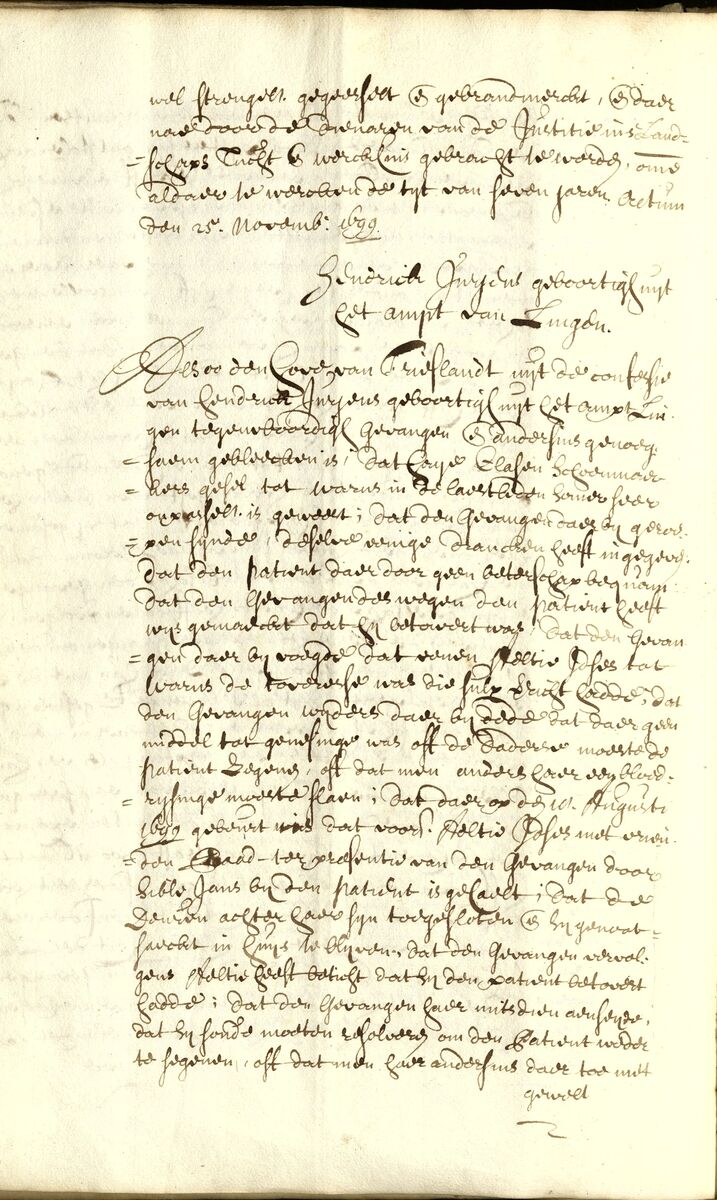 wel strengel. gegeesselt en gebrandmerckt, en daer
nae door de Dienaren van de Justitie in 's Land-
=schaps Tucht en werckhuis gebracht te worden, ome
aldaer te wercken de tyt van seven jaren. Actum
den 25e. Novemb: 1699.
Hendrick Jurjens geboortigh uyt
het ampt van Lingen.
Alsoo den Hove van Frieslandt uyt de confessie
van Hendrick Jurjens geboortigh uyt het ampt Lin-
gen tegenwoordigh Gevangen en andersins genoeg-
=saem gebleecken is, dat Haye Clasen Schoenmae-
=kers gesel tot Warns in de laestleden somer seer
onpasselt. is geweest; dat den Gevangen daer by geroe-
=pen synde, deselve eenige drancken heeft ingegeven.
dat den patient daer door geen beterschap bequam.
dat den Gevangen deswegen den patient heeft
wys gemaeckt dat hy betovert was, dat den Gevan
=gen daer by voegde dat eenen Aeltie Idses tot
Warns de toverersse was die sulx verricht hadde; dat
den Gevangen wyders daer by dede dat daer geen
middel tot genesinge was off de daderse moeste de
patient segenen, off dat men anders haer een bloed-
=rysinge moeste slaen; dat daer op de 10. Augusti
1699 gebeurt is dat voors. Aeltie Idses met vrien-
=den Raad ter præsentie van den Gevangen door
Sible Jans by den patient is gehaelt; dat de
Deuren achter haer syn toegesloten en sy genoot-
saeckt in huys te blyven, dat den Gevangen vervol-
gens Aeltie heeft beticht dat sy den patient betovert
hadde; dat den Gevangen haer mitsdien aenseyde,
dat sy soude moeten resolveren om den Patient weder
te segenen, off dat men haer andersins daer toe met
gewelt